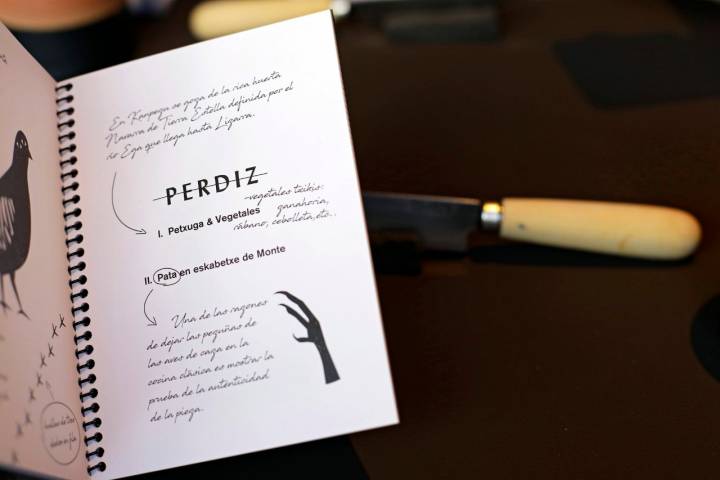 En Kanpega se goza de la rica huerta
Navarra de Tierra Estella definida por el
río Ega que llega hasta Lizarra.
PERDIZ
vegetales txikis:
I. Petxuga & Vegetales
ganahoria,
rábano, cebolleta, etc..
II. Pata en eskabetxe de Monte
Una de las razones
de dejar las pezuñas de
las aves de caza en la
cocina clásica es mostrar la
prueba de la autenticidad
de la pieza.